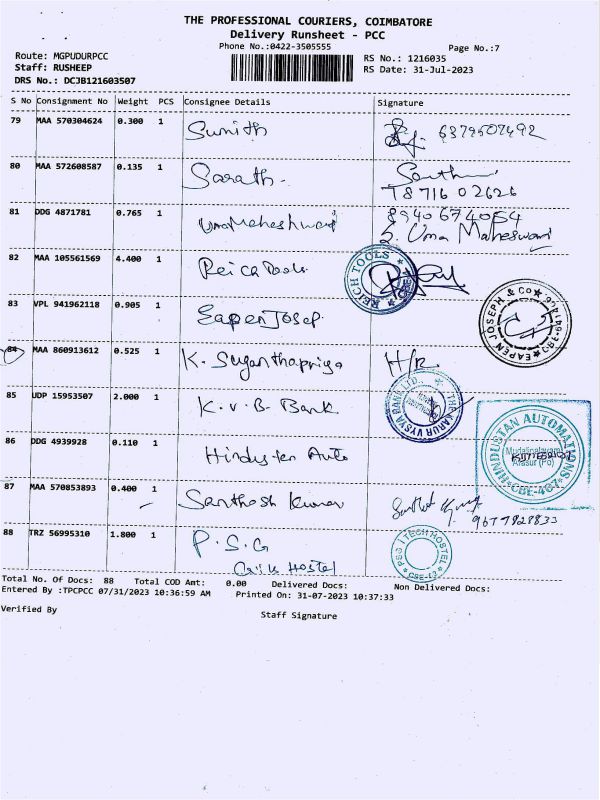 THE PROFESSIONAL COURIERS, COIMBATORE
Delivery Runsheet - PCC
Phone No.:0422-3505555
Page No.:7
Route: MGPUDURPCC
Staff: RUSHEEP
DRS No.: DCJB121603507
RS No.: 1216035
RS Date: 31-Jul-2023
S No Consignment No Weight PCS Consignee Details Signature
79 MAA 570304624 0.300 1 Sunith 6379507492
80 MAA 572608587 0.135 1 Sarath.
T8716 02626
81 DDG 4871781 0.765 1 Uma Maheshwari 8940674054
S. Uma Maheswari
82 MAA 105561569 4.400 1 Reica Tools
REICH TOOLS
83 VPL 941962118 0.905 1 Eapen Josep.
EAPEN JOSEPH & Co
84 MAA 860913612 0.525 1 K. Suganthapriya H/R
85 UDP 15953507 2.000 1 K.V.B. Bank
THE KARUR VYSYA BANK LTD.,
86 DDG 4939928 0.110 1 Hindusten Auto
HINDUSTAN AUTOMATIONS
Mudalipalayam
Arasur (Po)
CBE-407
87 MAA 570853893 0.400 1 Santhosh Kumar
9677928833
88 TRZ 56995310 1.800 1 P.S.G
Girls Hostel
PSG i TECH HOSTEL
Total No. Of Docs: 88 Total COD Amt: 0.00 Delivered Docs: Non Delivered Docs:
Entered By :TPCPCC 07/31/2023 10:36:59 AM Printed On: 31-07-2023 10:37:33
Verified By
Staff Signature